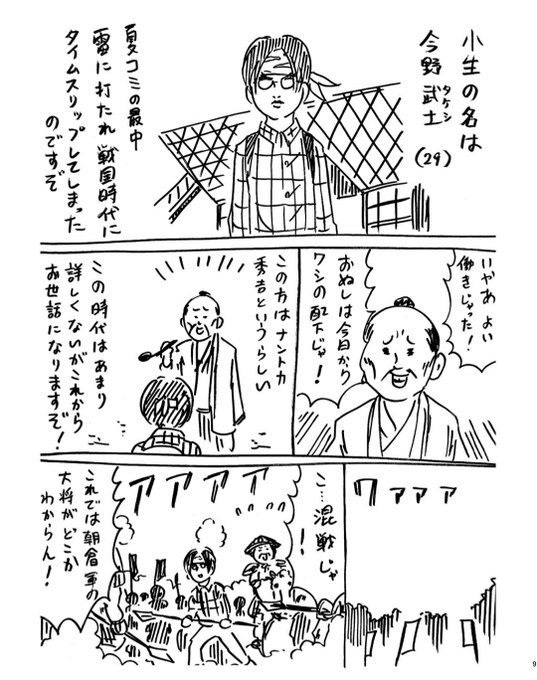 小生の名は
今野 武士
タケシ
(29)
夏コミの最中
雷に打たれ 戦国時代に
タイムスリップしてしまった
のですぞ
いやあ よい
働きじゃった!
おぬしは今日から
ワシの配下じゃ!
この方はナントカ
秀吉というらしい
この時代はあまり
詳しくないがこれから
お世話になりますぞ!
ワァァァ
アアアア
こ…混戦じゃ
!
これでは朝倉軍の
大将がどこか
わからん!
9